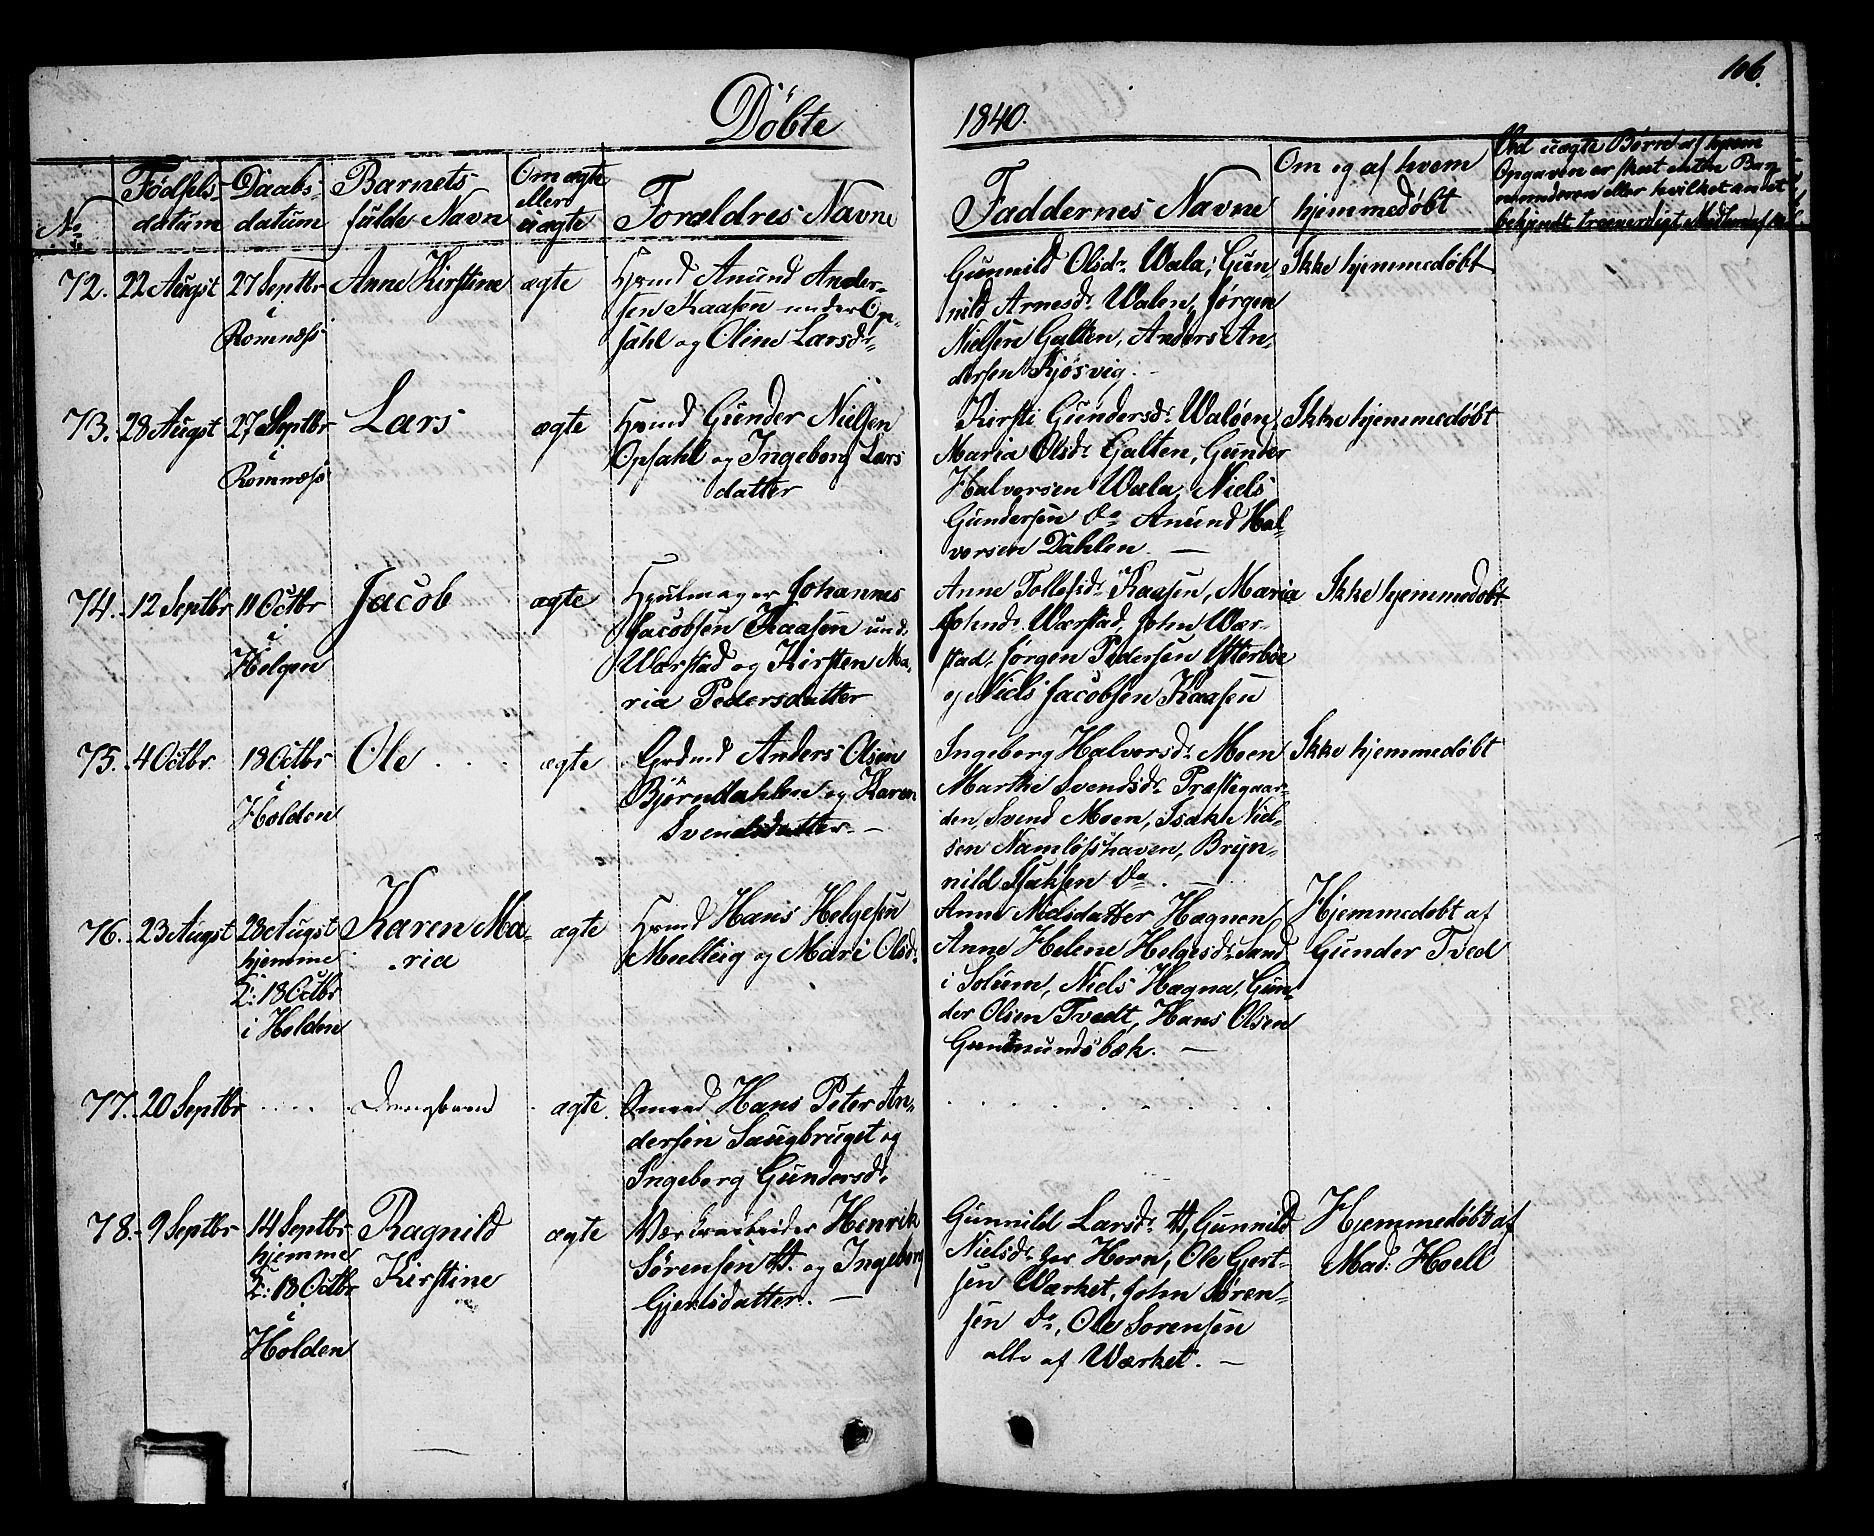 106.
Döbte 1840.
No
Födsels-
datum
Daabs-
datum
Barnets
fulde Navn
Om ægte
eller
uægte
Forældres Navne
Faddernes Navne
Om og af hvem
hjemmedøbt
Ved uægte Børn af hvem
Opgaven er skeet enten Bar
nemoderen eller hvilket andet
bekjendt troeværdigt Medlem af
72.
22 Augst
27 Septbr
i
Romnæs
Anne Kirstine
ægte
Hsmd Anund Ander-
sen Kaasen under Op-
sahl og Oline Larsdr.
Gunnild Olsdr. Wala, Gun
nild Arnesdr. Walen, Jørgen
Nielsen Galten, Anders An-
dersen Kjøsvig.
Ikke hjemmedøbt
73.
28 Augst
27 Septbr
i
Romnæs
Lars
ægte
Hsmd Gunder Nielsen
Opsahl og Ingeborg Lars
datter
Kirsti Gundersdr. Waløen
Maria Olsdr. Galten, Gunder
Halvorsen Wala, Niels
Gundersen do Anund Hal-
vorsen Dahlen. —
Ikke hjemmedøbt
74.
12 Septbr
11 Octbr
i
Helgen
Jacob
ægte
Hjulmager Johannes
Jacobsen Kaasen und.
Wærstad og Kirsten Ma-
ria Pedersdatter
Anne Tollefsdr. Kaasen, Maria
Johnsdr. Wærstad, John Wær-
stad, Jørgen Pedersen Ytterbøe
og Niels Jacobsen Kaasen
Ikke hjemmedøbt
75.
4 Octbr.
18 Octbr
i
Holden
Ole . . .
ægte
Anders Olsen
Bjørndahlen og Karen
Svendsdatter. —
Ingeborg Halvorsdr. Moen
Marthe Svendsdr. Præstegaar-
den, Svend Moen, Isak Niel-
sen Namløshaven, Bryn-
nild Isaksen do. —
Ikke hjemmedøbt
76.
23 Augst
28 Augst
hjemme
2: 18 Octbr
i Holden
Karen Ma-
ria
ægte
Hsmd Hans Helgesen
Meelteig og Mari Olsdr.
Anne Nielsdatter Hægnen
Anne Helene Helgesdr. Sand
i Solum, Niels Hægna, Gun-
der Olsen Tvedt, Hans Olsen
Gundmundsbæk. —
Hjemmedøbt af
Gunder Tved
77.
20 Septbr
. . . .
Drengebarn
ægte.
Hans Peter An-
dersen Saugbruget og
Ingeborg Gundersdr.
78.
9 Septbr
14 Septbr
hjemme
2: 18 Octbr
i
Holden
Ragnild
Kirstine
ægte
Værksarbeider Henrik
Sørensen H. og Ingeborg
Gjertsdatter. —
Gunnild Larsdr. H, Gunnild
Nielsdr. Horn, Ole Gjert-
sen Wærket, John Søren-
sen do, Ole Sorensen
alle af Wærket. —
Hjemmedøbt af
Mad: Hoell